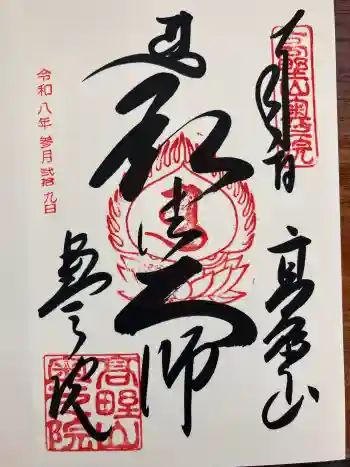 奉拝
高野山
弘法大師
奥之院
令和八年 参月 弐拾九日
高野山奥之院
高野山奥之院